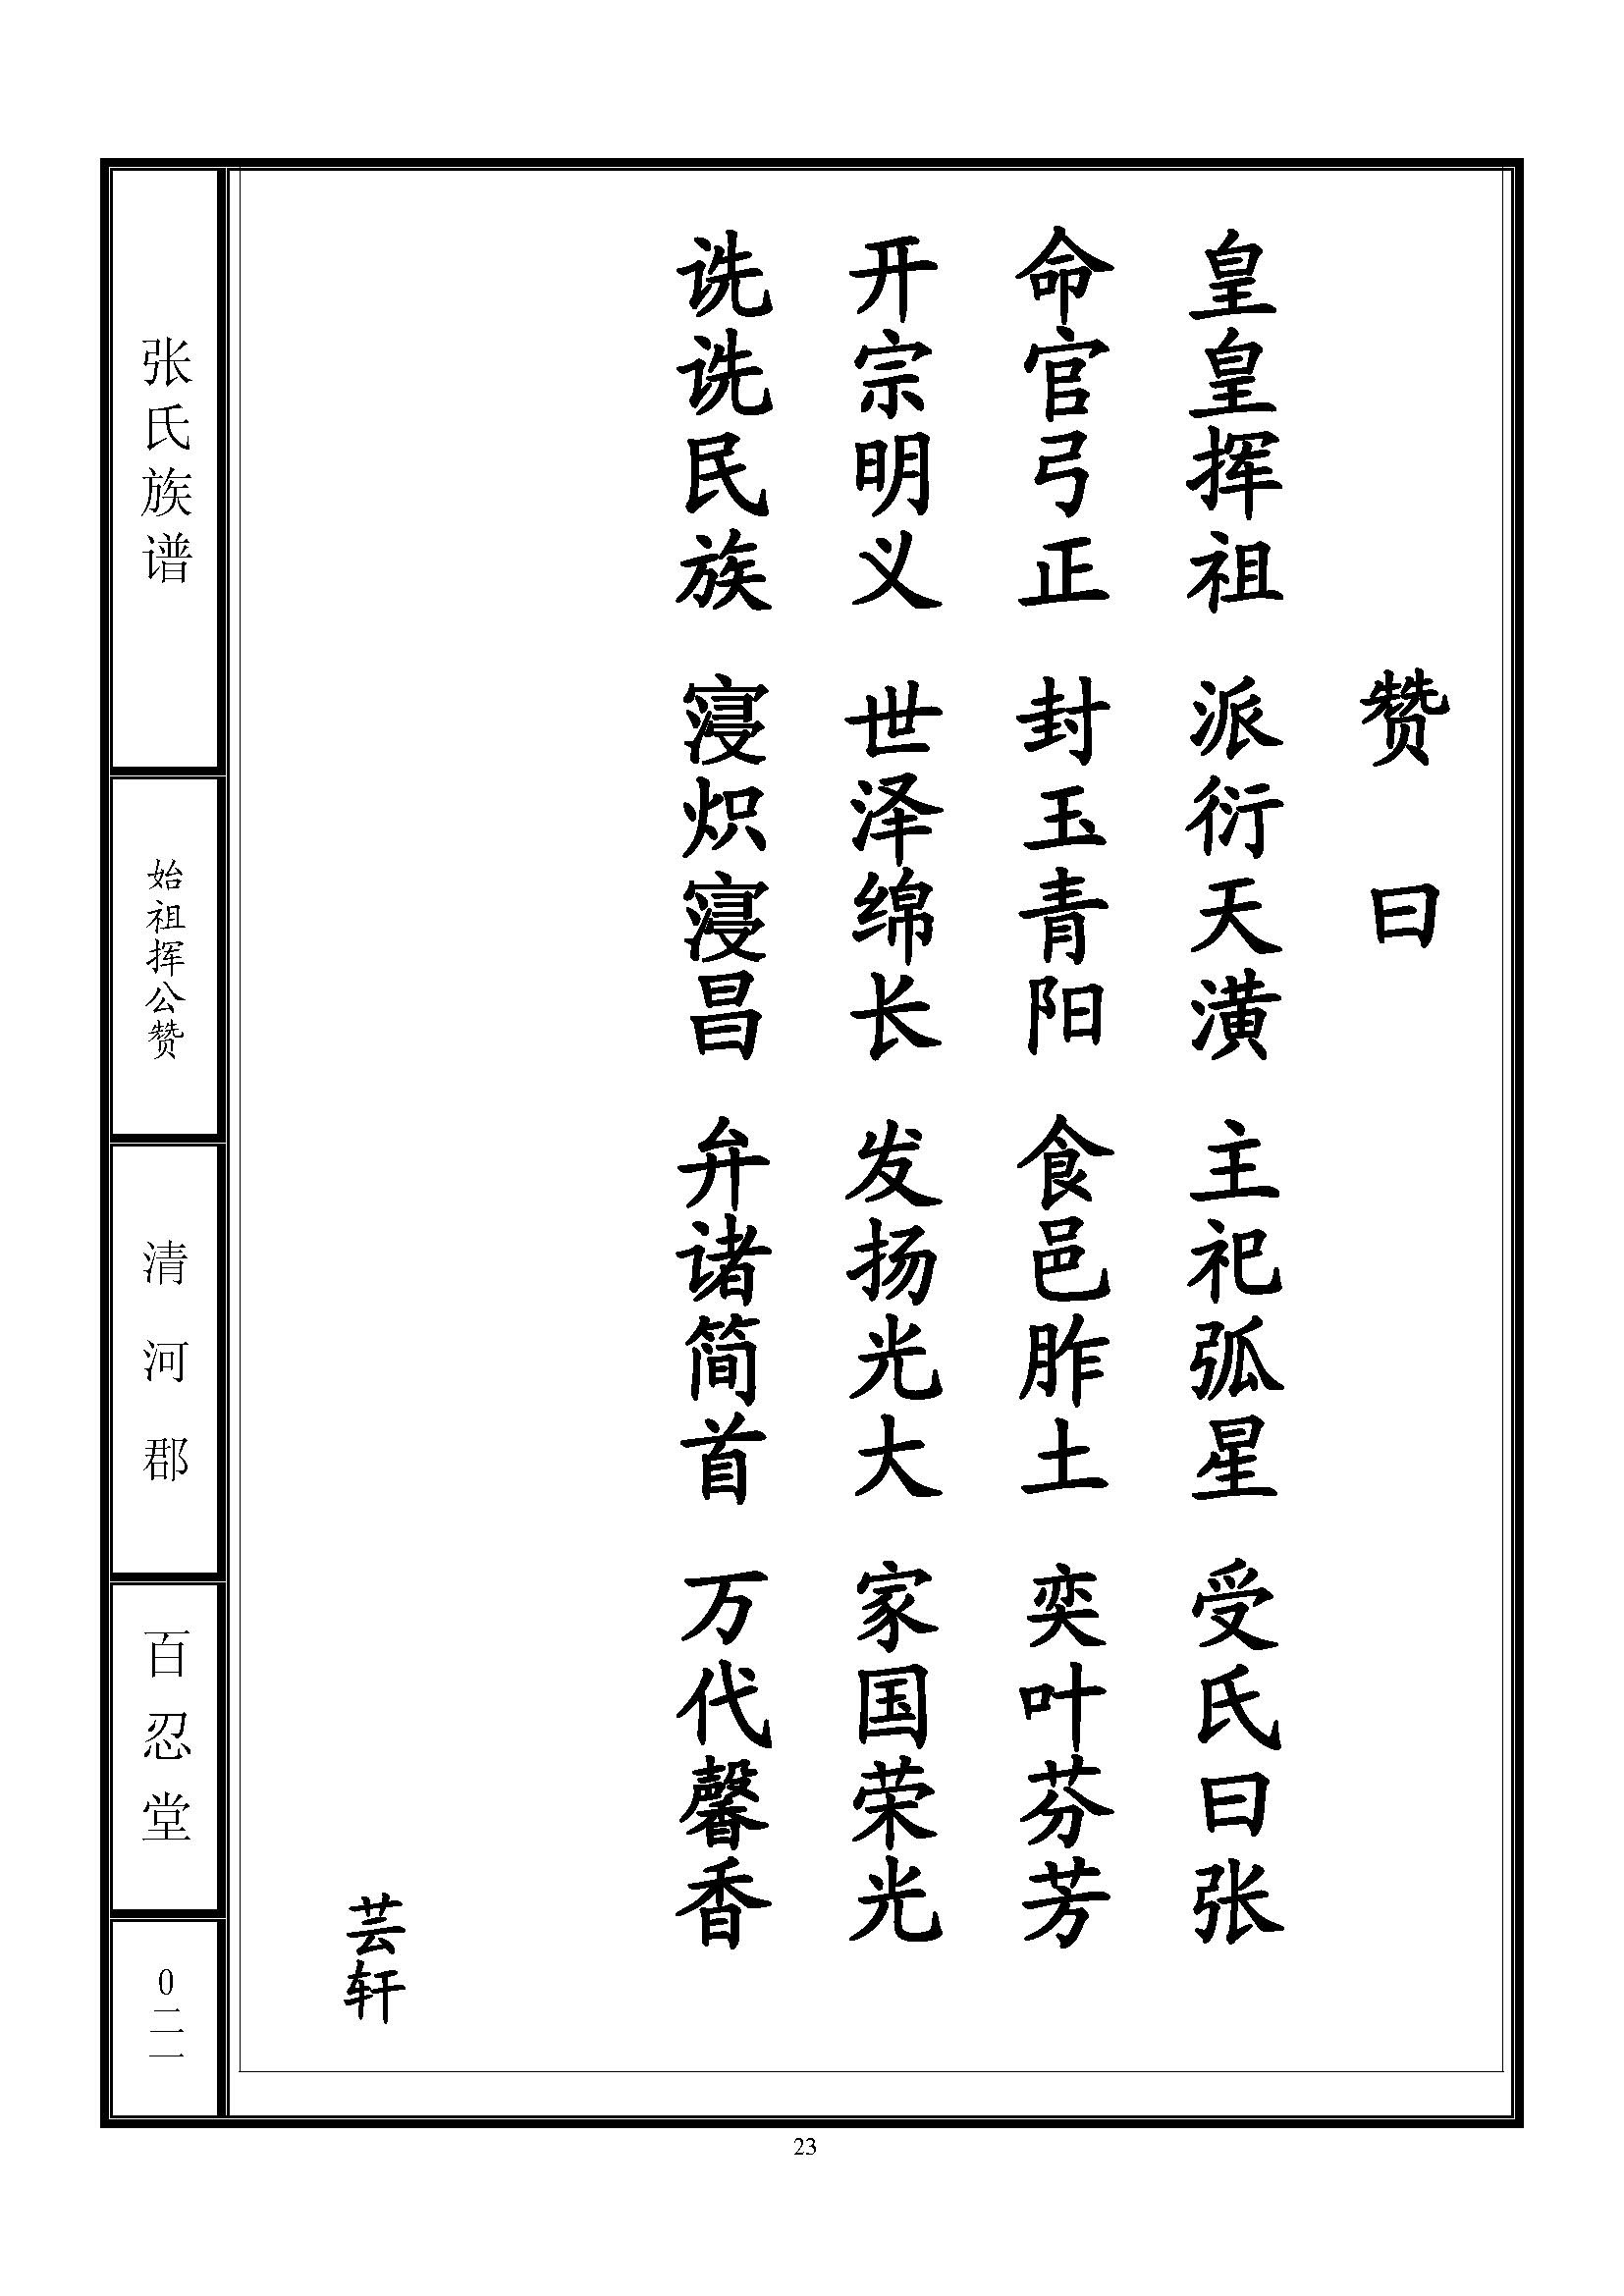 赞曰
皇皇挥祖 派衍天潢 主祀弧星 受氏曰张
命官弓正 封玉青阳 食邑胙土 奕叶芬芳
开宗明义 世泽绵长 发扬光大 家国荣光
诜诜民族 寖炽寖昌 弁诸简首 万代馨香
芸轩
张氏族谱
始祖挥公赞
清河郡
百忍堂
0二一
23